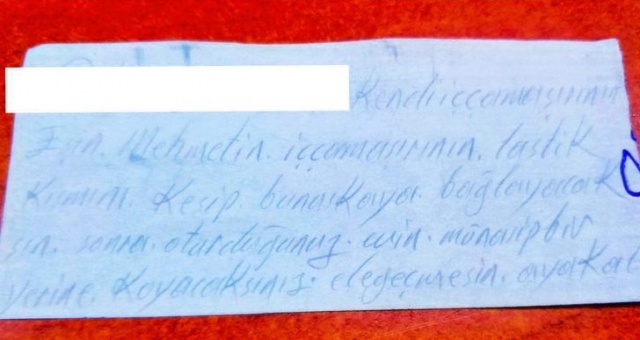 Kendi iççamaşırının
Mehmetin. iççamaşırının. lastik
Kısmını. Kesip. buna Kaya. bağlayacak
sın. sonra. oturduğunuz. evin. münasip bir
yerine. Koyacaksınız. elegeçmesin. ayakal